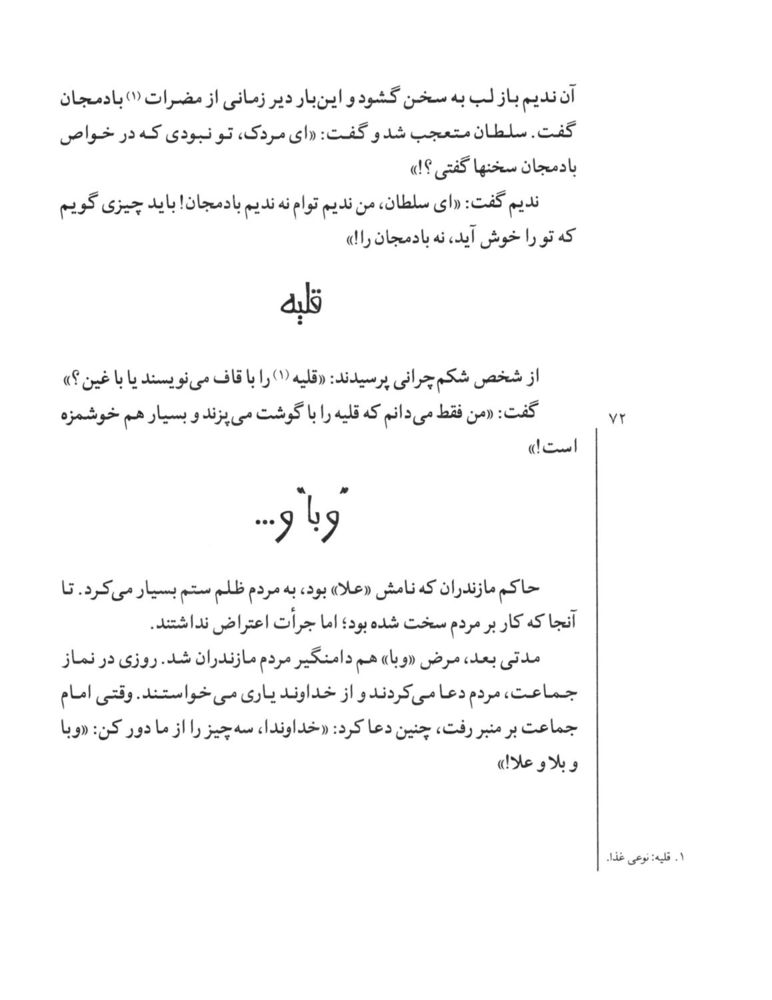 آن ندیم باز لب به سخن گشود و این‌بار دیر زمانی از مضرات (۱) بادمجان
گفت. سلطان متعجب شد و گفت: «ای مردک، تو نبودی که در خواص
بادمجان سخنها گفتی؟!»
ندیم گفت: «ای سلطان، من ندیم توام نه ندیم بادمجان! باید چیزی گویم
که تو را خوش آید، نه بادمجان را!»
قلیه
از شخص شکم‌چرانی پرسیدند: «قلیه (۱) را با قاف می‌نویسند یا با غین؟»
گفت: «من فقط می‌دانم که قلیه را با گوشت می‌پزند و بسیار هم خوشمزه
است!»
۷۲
"وبا" و...
حاکم مازندران که نامش «علا» بود، به مردم ظلم ستم بسیار می‌کرد. تا
آنجا که کار بر مردم سخت شده بود؛ اما جرأت اعتراض نداشتند.
مدتی بعد، مرض «وبا» هم دامنگیر مردم مازندران شد. روزی در نماز
جماعت، مردم دعا می‌کردند و از خداوند یاری می‌خواستند. وقتی امام
جماعت بر منبر رفت، چنین دعا کرد: «خداوندا، سه‌چیز را از ما دور کن: «وبا
و بلا و علا!»
۱. قلیه: نوعی غذا.